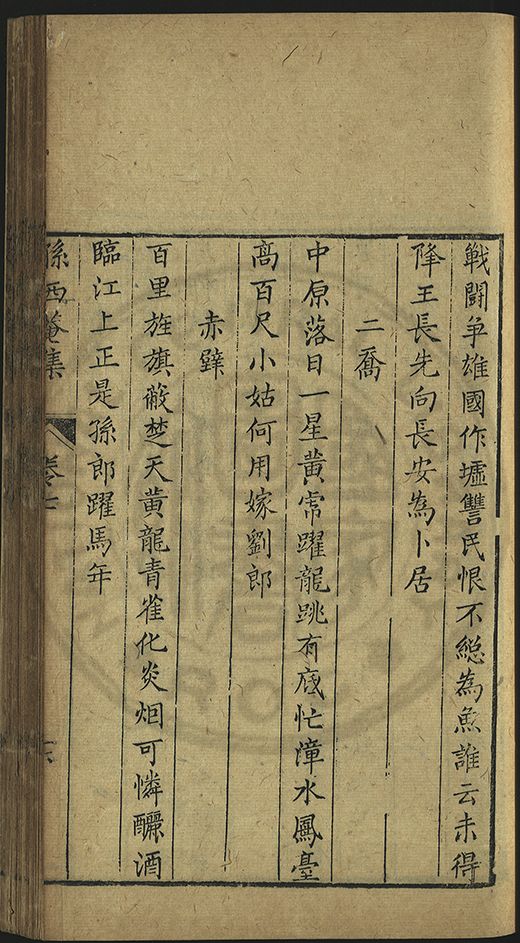 戰鬪爭雄國作墟讐民恨不緫為魚誰云未得
降王長先向長安為卜居
二喬
中原落日一星黃常躍龍跳有底忙漳水鳳臺
高百尺小姑何用嫁劉郎
赤壁
百里旌旗蔽楚天黃龍青雀化炎烟可憐釃酒
臨江上正是孫郎躍馬年
孫西菴集 卷七